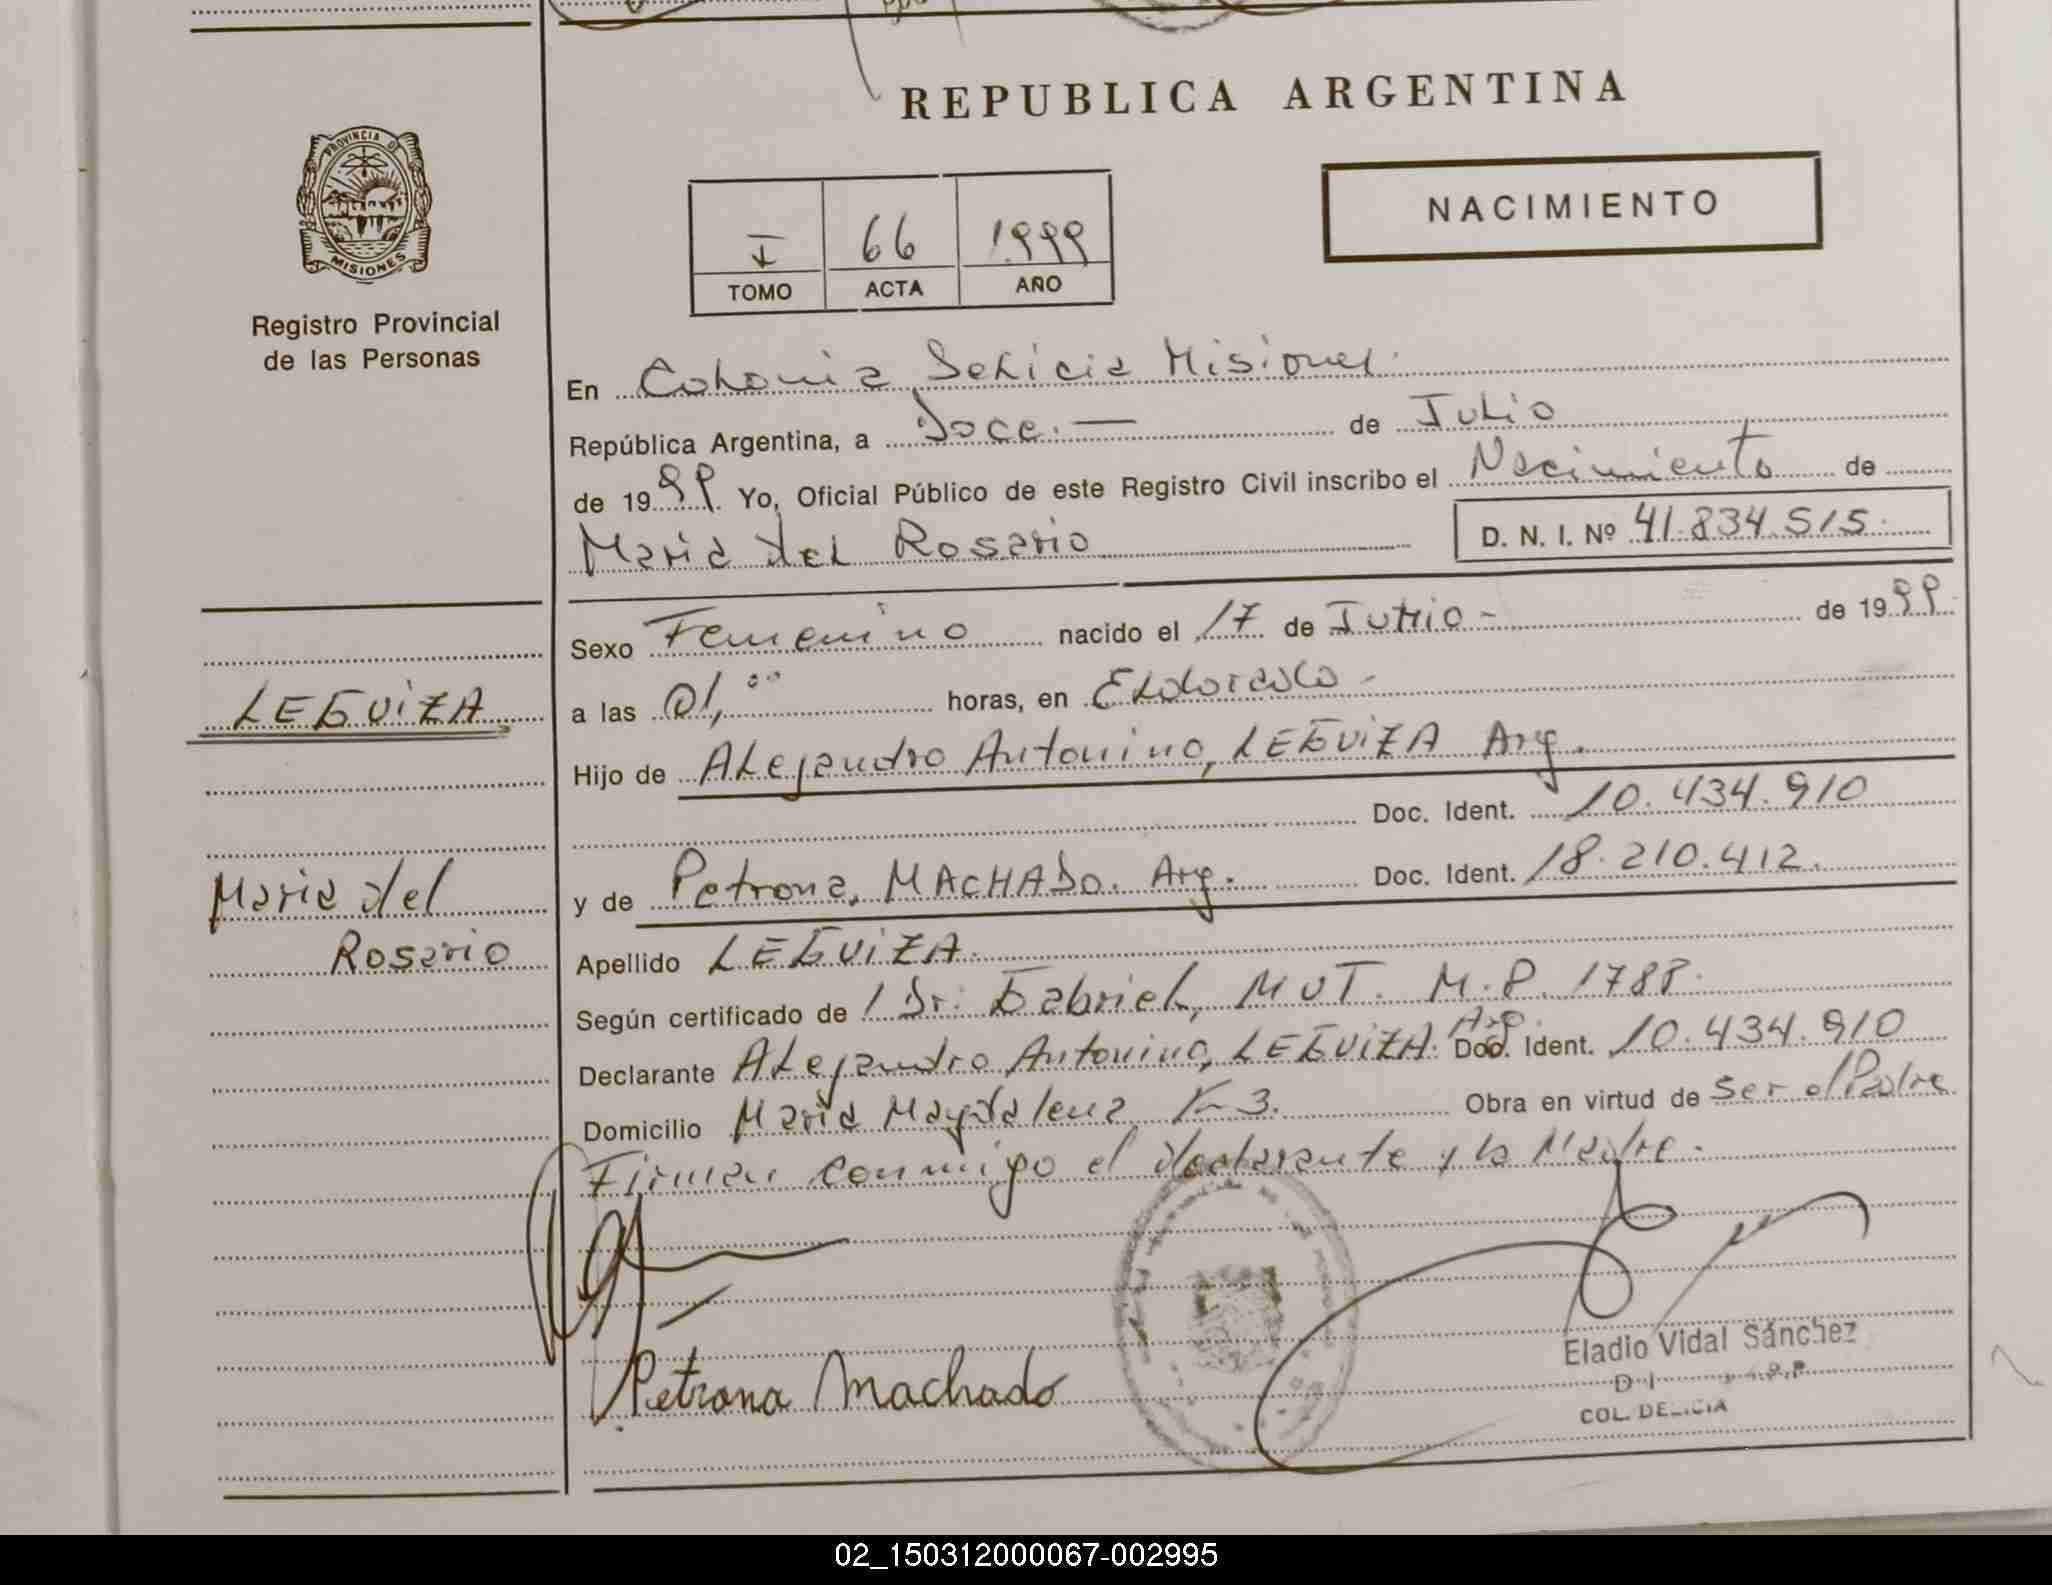 REPUBLICA ARGENTINA
PROVINCIA DE
MISIONES
Registro Provincial
de las Personas
I 66 1.999
TOMO ACTA AÑO
NACIMIENTO
En Colonia Delicia Misiones.
República Argentina, a Doce.— de Julio
de 1999 Yo, Oficial Público de este Registro Civil inscribo el Nacimiento de
Maria del Rosario D. N. I. Nº 41.834.515.
Sexo Femenino nacido el 17 de Junio - de 1999
a las 01,00 horas, en Eldorado -
Hijo de Alejandro Antonino, LEGUIZA Arg.
Doc. Ident. 10.434.910
y de Petrona, MACHADO. Arg. Doc. Ident. 18.210.412.
Apellido LEGUIZA.
Según certificado de / Dr. Gabriel, MUT. M.P. 1788.
Declarante Alejandro Antonino, LEGUIZA. Arg. Doc. Ident. 10.434.910
Domicilio Maria Magdalena K-3. Obra en virtud de ser el Padre
Firman conmigo el declarante y la Madre.
LEGUIZA
Maria del
Rosario
Petrona Machado
Eladio Vidal Sánchez
COL. DELICIA
02_150312000067-002995